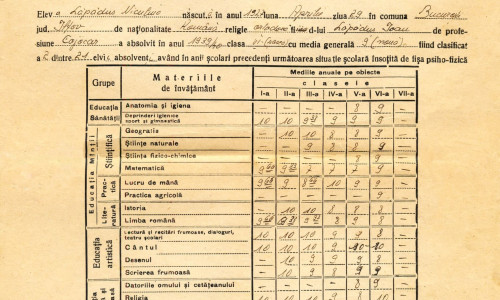 Elev a Lăpăduș Niculina născut, în anul Aprilie ziua 29 în comuna București
jud. Ilfov de naționalitate Română religie ortodoxă d-lui Lăpăduș Ioan de profe-
siune Cojocar a absolvit în anul 1939/40 cu media generală 9 (nouă) fiind clasificat
a 2 dintre 21 elevi absolvenți, având în anii școlari precedenți următoarea situație școlară însoțită de fișa psiho-fizică
Grupe Materiile de învățământ Mediile anuale pe obiecte
clasele
I-a II-a III-a IV-a V-a VI-a VII-a
Educația Sănătății Anatomia și igiena — — — — 8 9 —
Deprinderi igienice sport și gimnastică 10 10 9 9 8 9
Educația Minții Științifică Geografia — 10 10 8 8 9 —
Științe naturale — — 9 8 8 9 —
Științe fizico-chimice — — — — 8 9 —
Matematica 7 7 9 —
Practică Lucru de mână 10 9 9 —
Practica agricolă — — — — — 9 —
Literatură Istoria — 10 10 8 8 9 —
Limba română 8 9 8 —
Educația artistică Lectură și recitări frumoase, dialoguri, teatru școlar 10 10 10 9 9 8
Cântul 10 10 10 9 10 10 —
Desenul — 10 9 9 9 8 —
Scrierea frumoasă — 10 9 8 9 9 —
Datoriile omului și cetățeanului — — — — 8 8 —
Religia